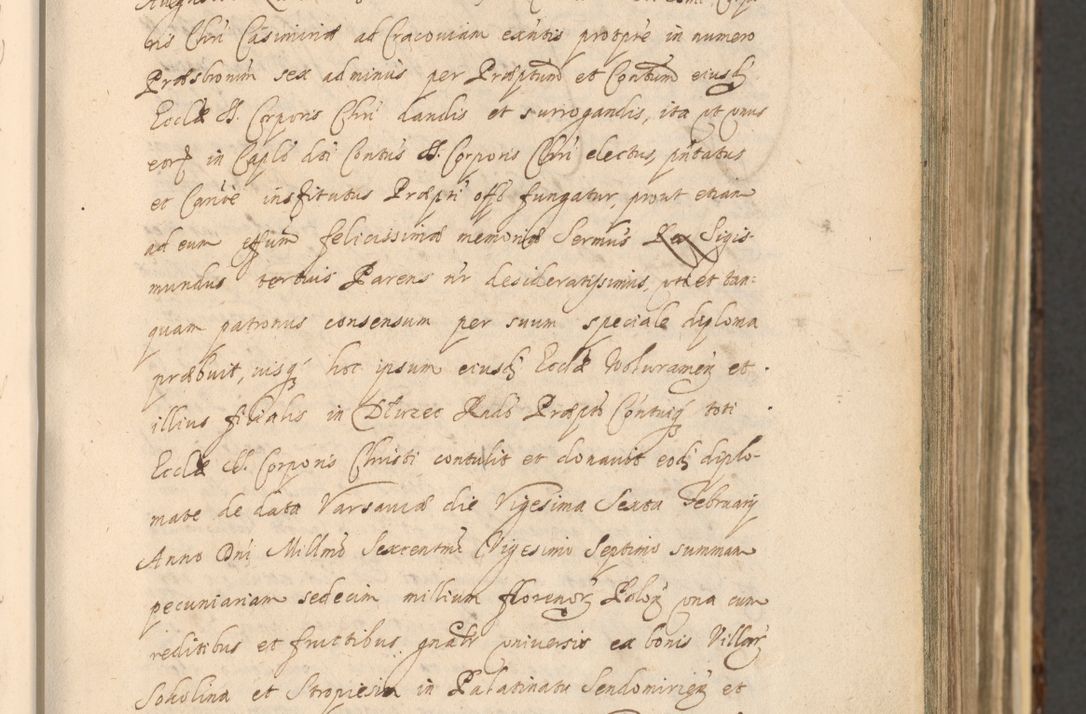 ris Chri Casimiriæ ad Cracoviam exntis proprè in numero
Præsbrorum sex ad minus per Præptum et Contum eiusd
Ecclæ SS. Corporis Chri dandis et surrogandis, ita ut unus
eorz in Caplo dti Contus SS. Corporis Chri electus, pntatus
et Canicè institutus Præpti offo fungatur prout etiam
ad eum effum felicissimæ memoriæ Sermus Rex Sigis-
mundus tertius Parens nr desideratissimus, uti et tan:
quam patronus consensum per suum speciale diploma
præbuit, iusq hoc ipsum eiusd Ecclæ
illius filialis in Præpto toti
Ecclæ SS. Corporis Christi contulit et donavit eod diplo-
mate de data Varsaviæ die Vigesima Sexta Februarij
Anno Dni Millmo Sexcentmo Vigesimo Septimo summam
pecuniariam sedecim millium florenorz Polorz una cum
reditibus et fructibus gnalr universis ex bonis Villarz
Sokolina et Stropiesin in Palatinatu Sendomirien et